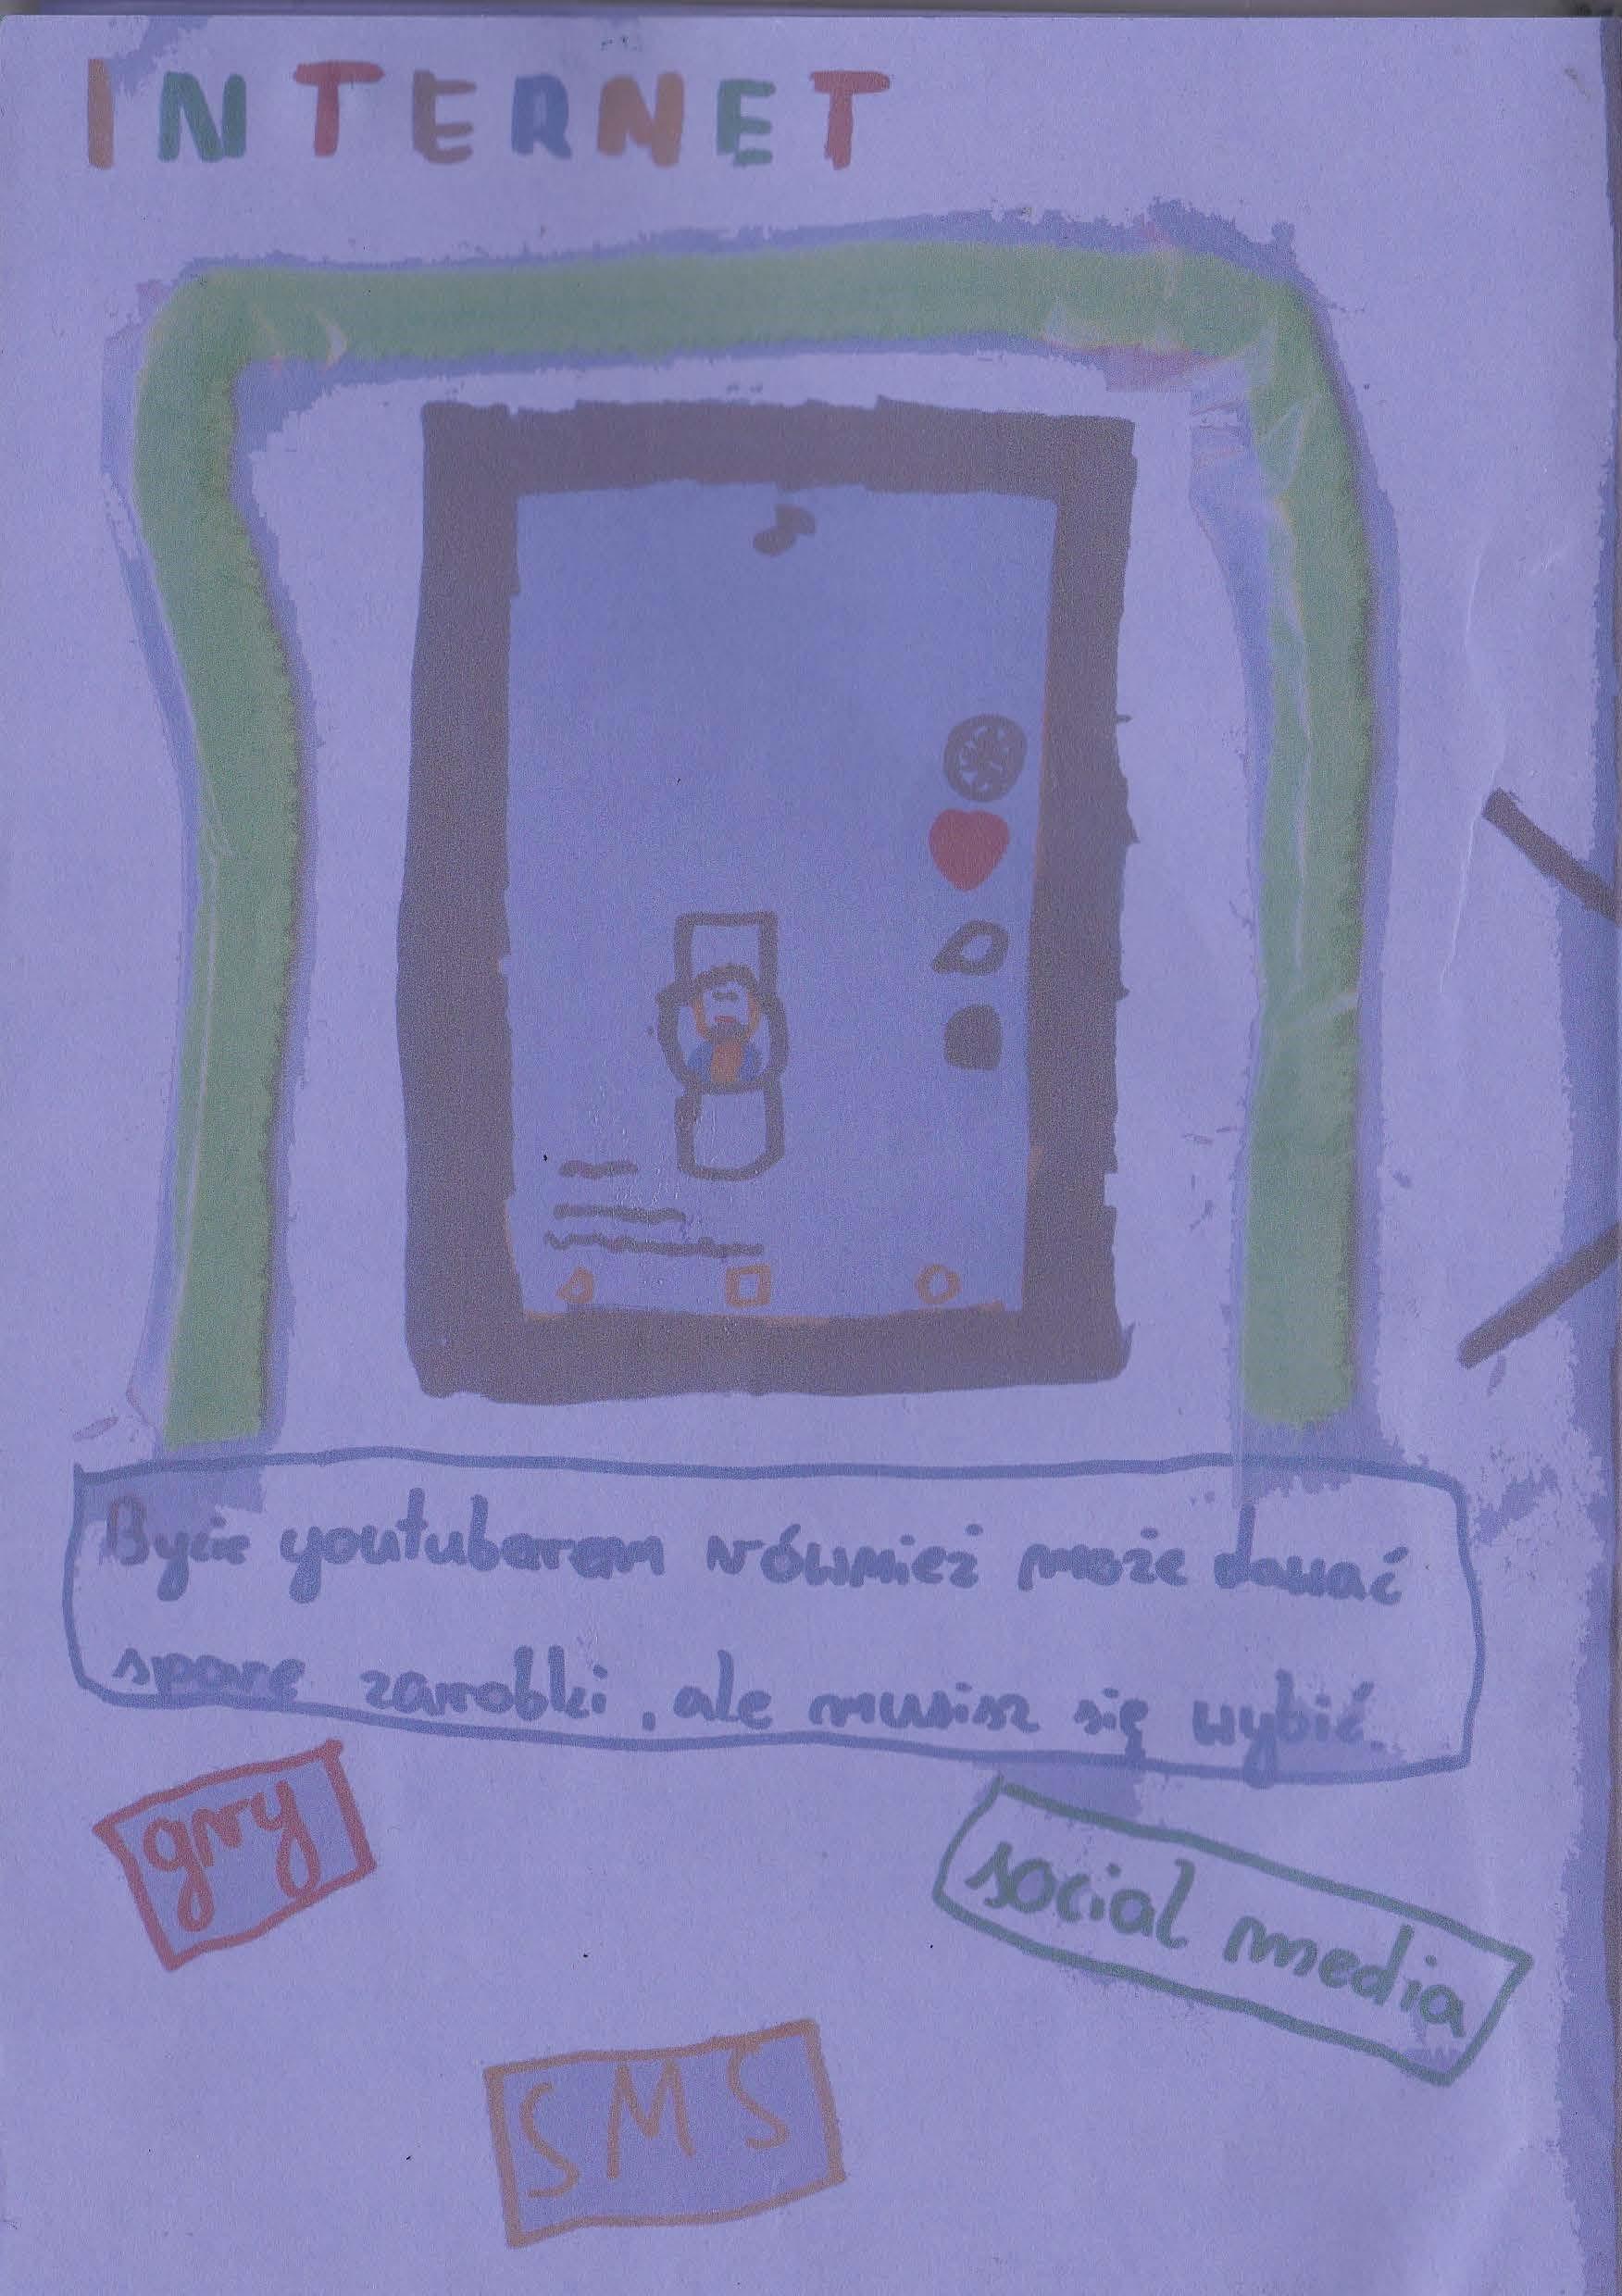 INTERNET
Bycie youtuberem również może dawać
spore zarobki, ale musisz się wybić.
gry
social media
SMS